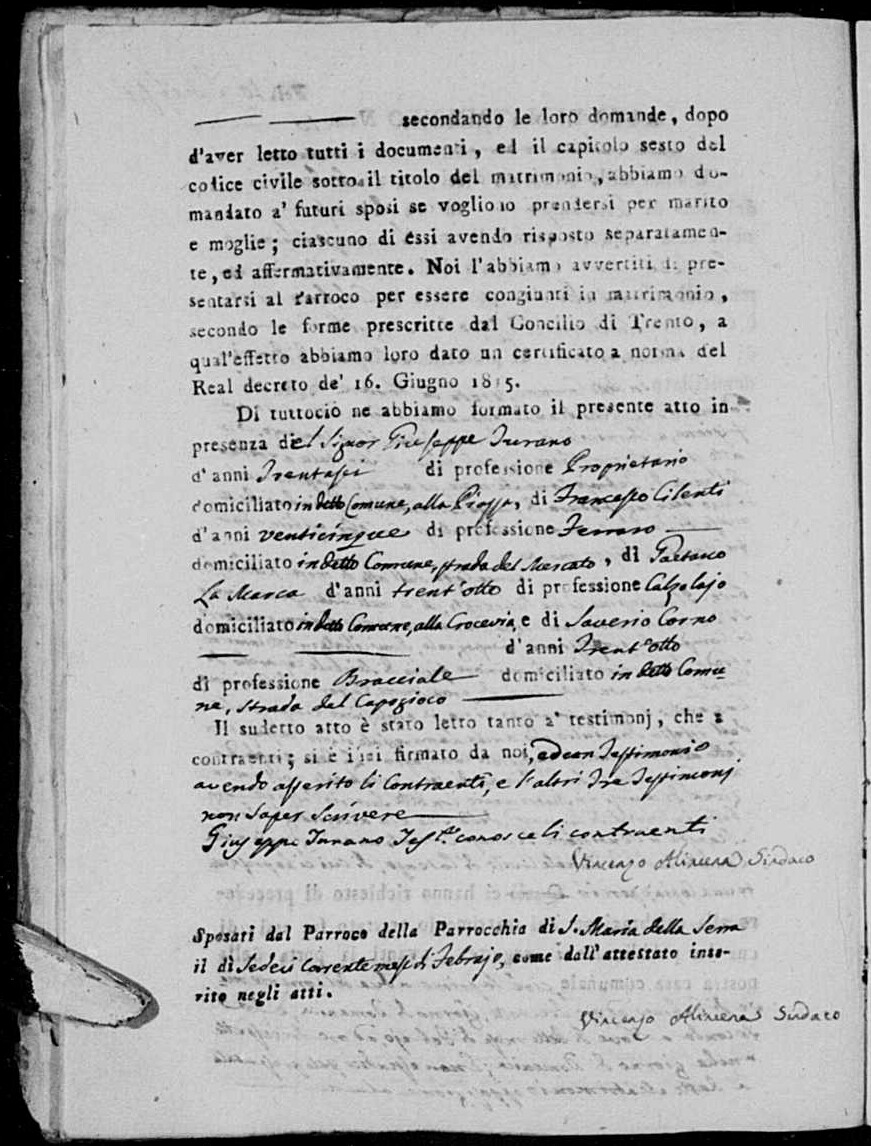 secondando le loro domande, dopo
d'aver letto tutti i documenti, ed il capitolo sesto del
codice civile sotto il titolo del matrimonio, abbiamo do-
mandato a' futuri sposi se vogliono prendersi per marito
e moglie; ciascuno di essi avendo risposto separatamen-
te, ed affermativamente. Noi l'abbiamo avvertiti di pre-
sentarsi al Parroco per essere congiunti in matrimonio,
secondo le forme prescritte dal Concilio di Trento, a
qual'effetto abbiamo loro dato un certificato a norma del
Real decreto de' 16. Giugno 1815.
Di tuttociò ne abbiamo formato il presente atto in
presenza del Signor Giuseppe Turano
d'anni Trentasei di professione Proprietario
domiciliato in detto Comune, alla Piazza, di Francesco Cilenti
d'anni venticinque di professione Ferraro
domiciliato in detto Comune, strada del Mercato, di Gaetano
La Marca d'anni trent'otto di professione Calzolajo
domiciliato in detto Comune, alla Crocevia, e di Saverio Corno
d'anni Trent'otto
di professione Bracciale domiciliato in detto Comu
ne, strada del Capogioco
Il sudetto atto è stato letto tanto a' testimonj, che a
contraenti; si è indi firmato da noi, ed un Testimonio
avendo asserito li Contraenti, e l'altri Tre Testimonj
non saper scrivere
Giuseppe Turano Test.e conosce li contraenti
Vincenzo Alimena Sindaco
Sposati dal Parroco della Parrocchia di S. Maria della Serra
il dì Sedeci corrente mese di Febrajo, come dall'attestato inse-
rito negli atti.
Vincenzo Alimena Sindaco